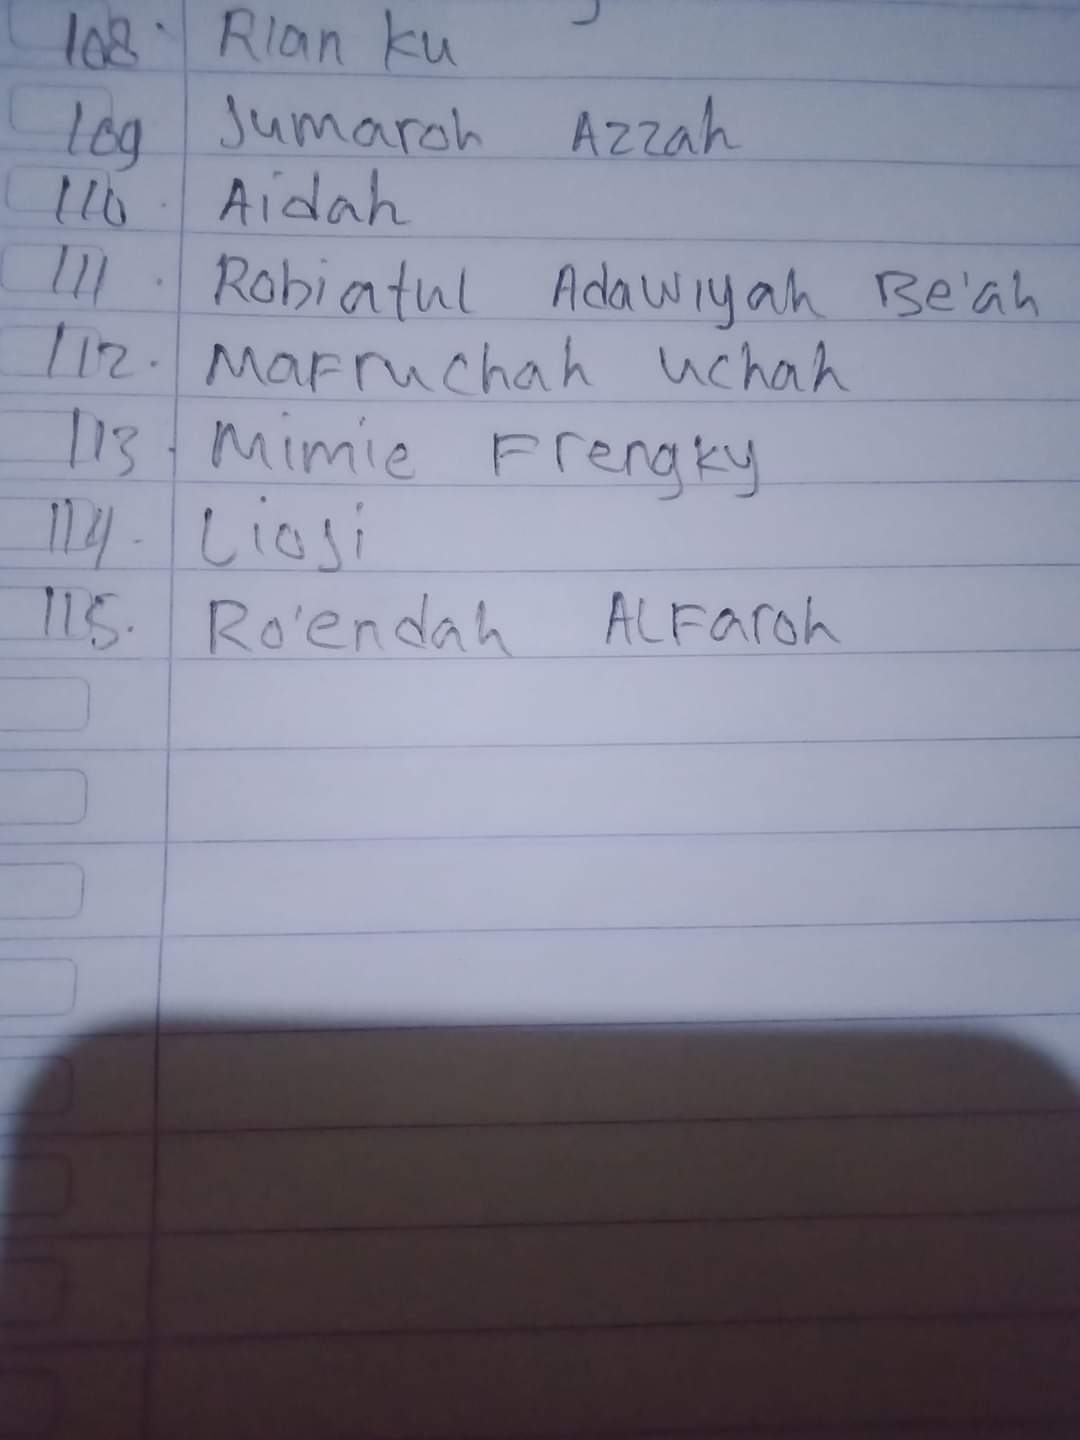 108. Rian ku
109 Jumaroh Azzah
110. Aidah
111. Robiatul Adawiyah Be'ah
112. Mafruchah uchah
113. Mimie Frengky
114. Liosi
115. Ro'endah ALFaroh